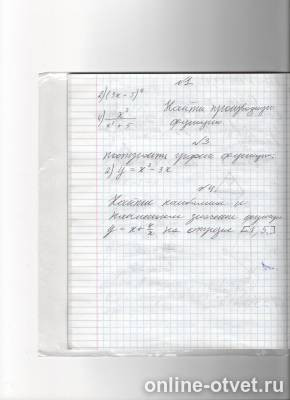 №1
2) (3x - 5)⁴
4) x³/(x² + 5) Найти производную функции
№3
построить график функции:
2) y = x³ - 3x
№4.
Найти наибольшее и
наименьшее значение функции
y = x + 4/x на отрезке [1; 5]
online-otvet.ru